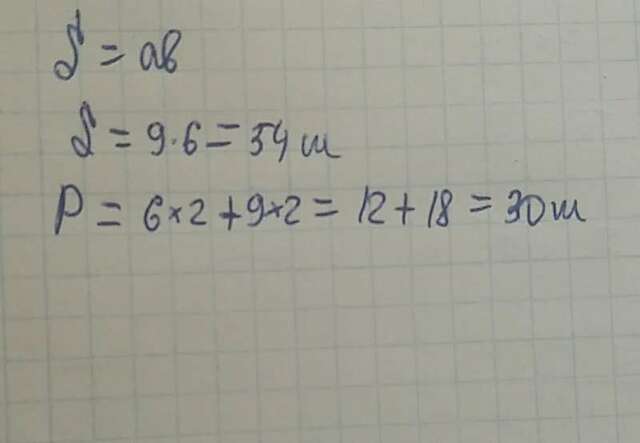 S = ab
S = 9·6 = 54 m
P = 6×2+9×2 = 12+18 = 30 m